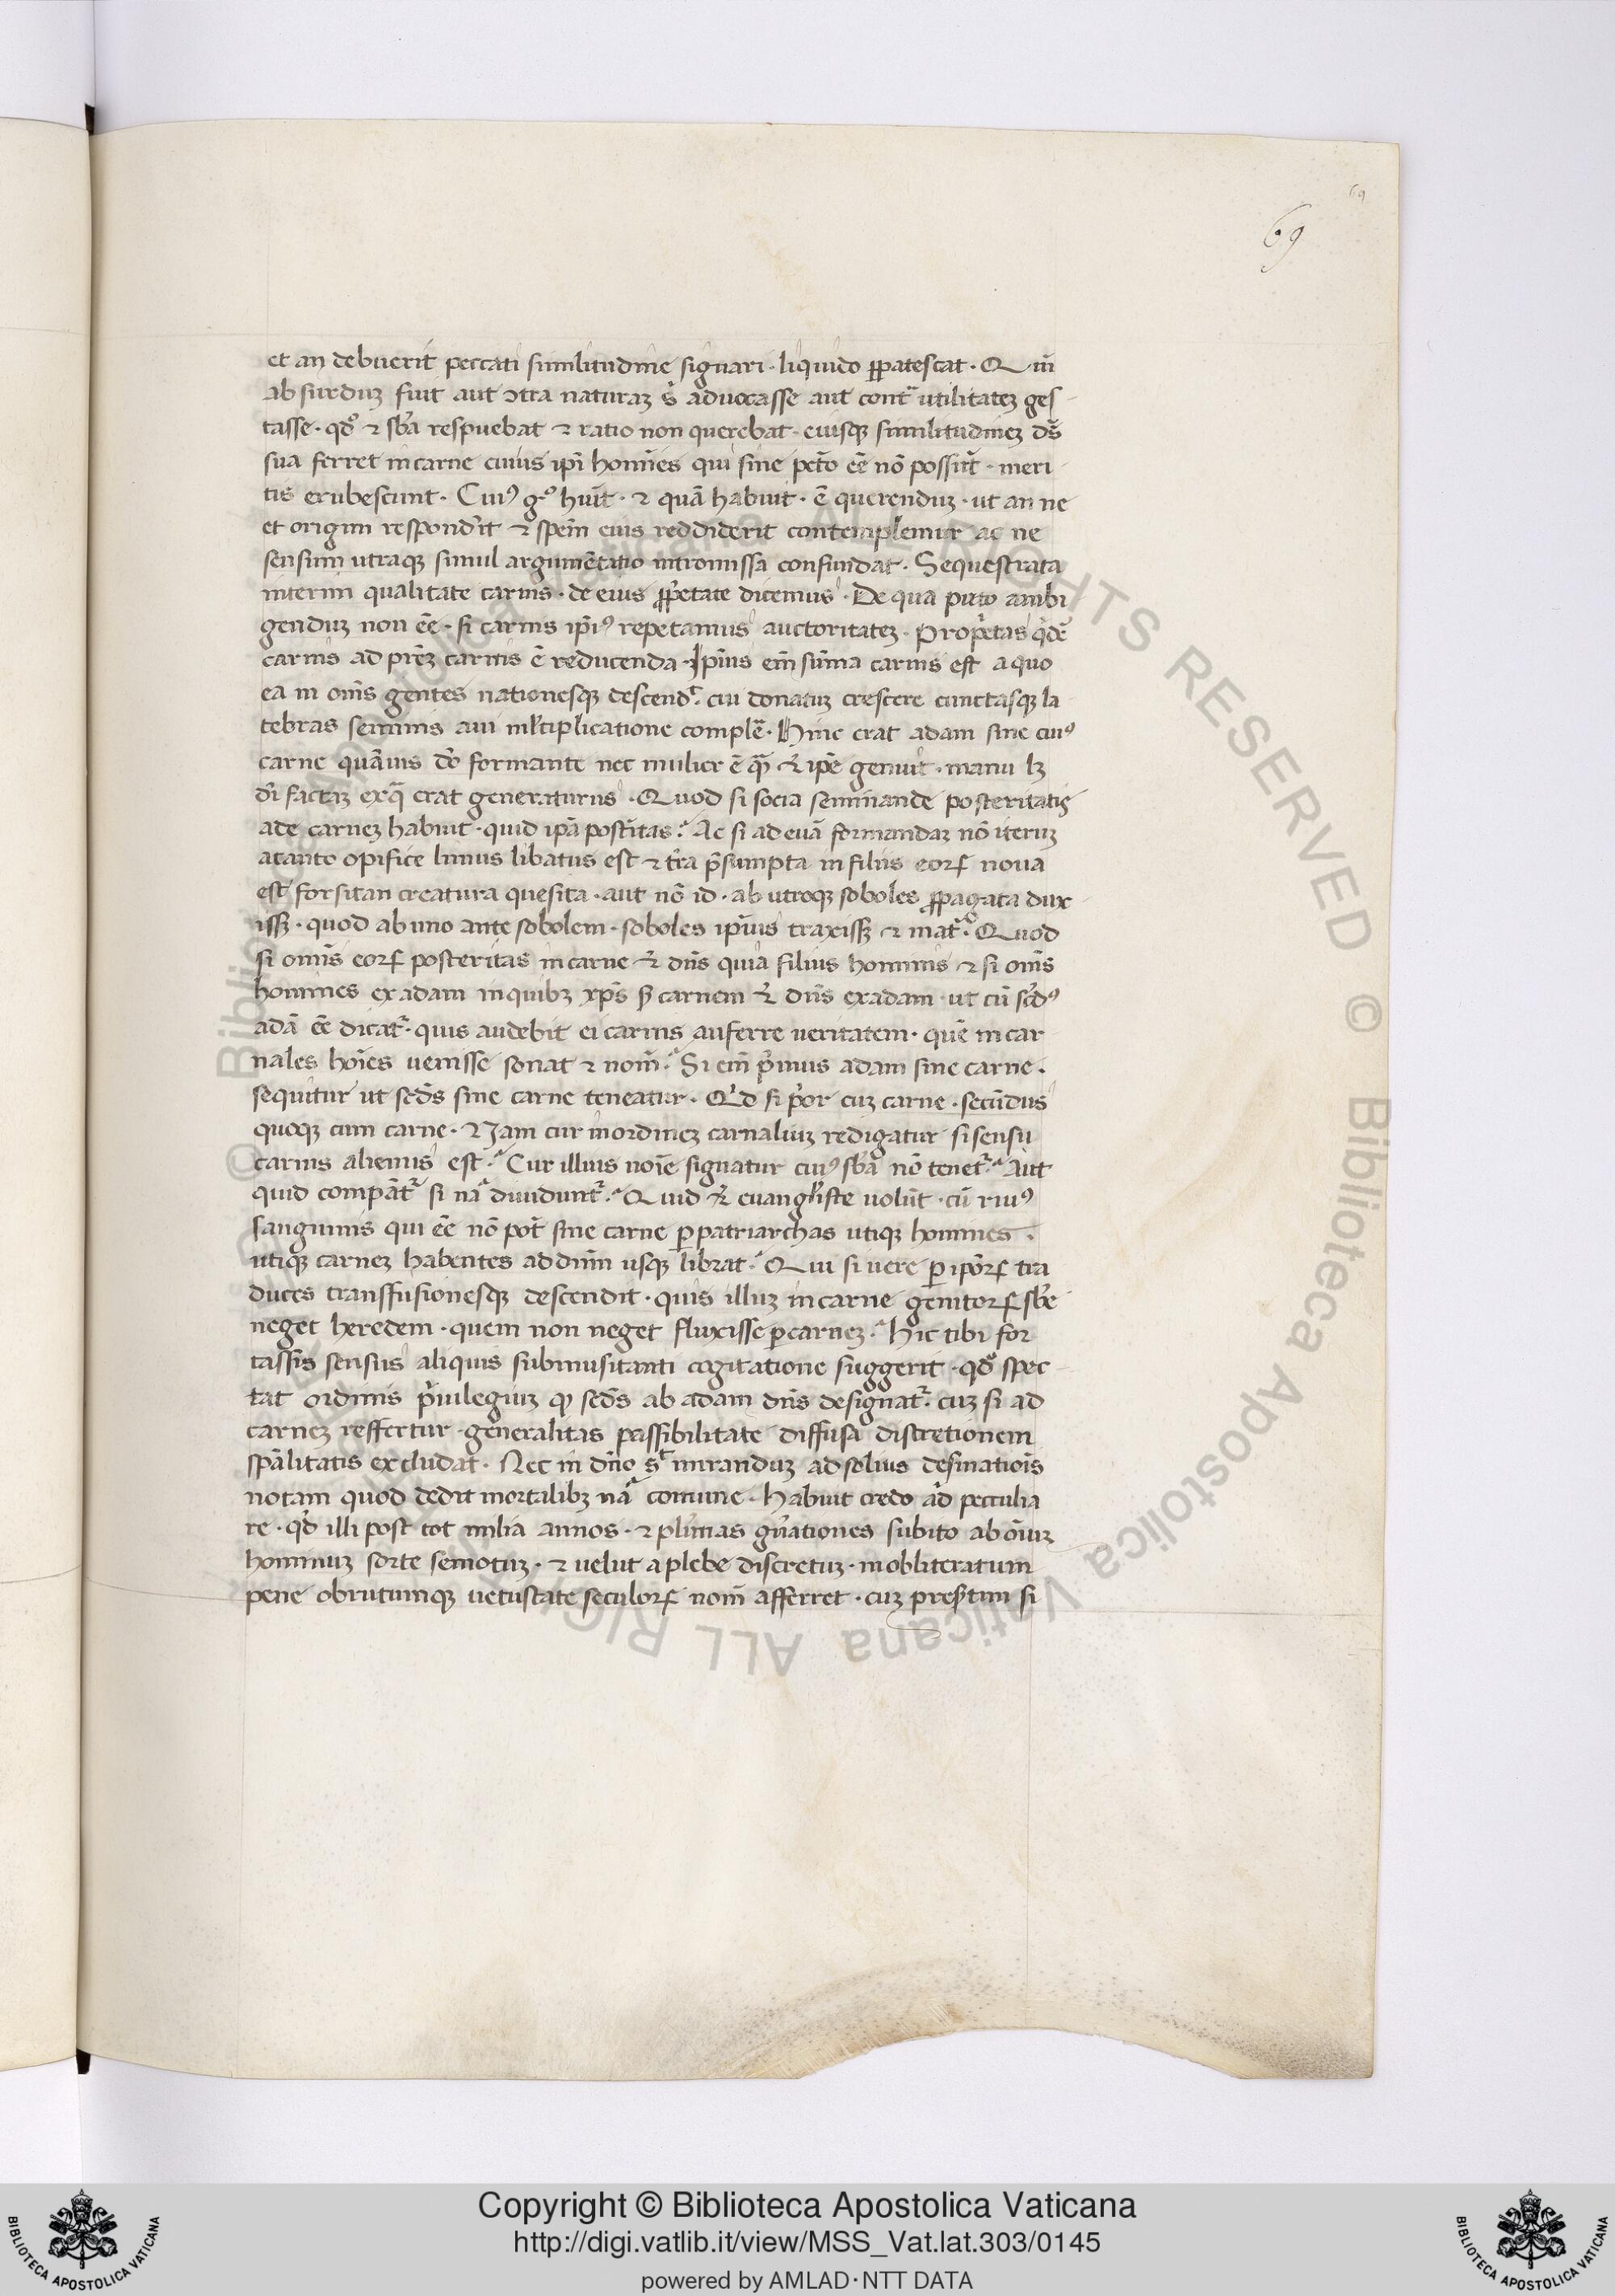 69
69
et an debuerit peccati similitudine signari · liquido ꝓpatescat · Qm̄
absurduꝫ fuit aut ↄtra naturaꝫ s̄ advocasse aut contᵃ utilitateꝫ ges
tasse · qđ ⁊ sb̄a respuebat ⁊ ratio non querebat · eiusqꝫ similitudineꝫ ds̄
sua ferret in carne cuius ip̄i homīes qui sine pctō eē nō possūt · meri
tis erubescunt · Cuiꝰ gᵒ huīt · ⁊ quā habuit · ē querenduꝫ · ut an ne
et origini respond'it ⁊ spēm eius reddiderit contemplemur ac ne
sensum utraqꝫ simul argumētatio intromissa confundat · Sequestrata
interim qualitate carnis · de eius ꝓp'etate dicemus · De qua puto ambi
genduꝫ non eē · si carnis ip̄iꝰ repetamus auctoritateꝫ · Prop'etas qⁱdē
carnis ad prēꝫ carnis ē reducenda · Ip̄ius em̄ sūma carnis est a quo
ea in om̄s gentes nationesqꝫ descendᵗ · cui donatuꝫ crescere cunctasqꝫ la
tebras seminis sui ml'tiplicatione complē · Hinc erat adam sine cuiꝰ
carne quāuis dō formante nec mulier ē q̄ꝫ ⁊ ip̄e genuit · manu lꝫ
dī factaꝫ ex qᵃ erat generaturus · Quod si socia seminande posteritatis
ade carneꝫ habuit · quid ip̄a post'itas · Ac si ad euā formandaꝫ nō iteruꝫ
a tanto opifice limus libatus est ⁊ t'ra p̄sumpta in filiis eorꝝ noua
est forsitan creatura quesita · aut nō id · ab utroqꝫ soboles ꝓpagata dux
issꝫ · quod ab uno ante sobolem · soboles ip̄ius traxissꝫ ⁊ mat' · Quod
si om̄is eorꝝ posteritas in carne ⁊ dn̄s quia filius hominis ⁊ si om̄s
homines ex adam in quibꝫ xp̄s s̄ carnem ⁊ dn̄s ex adam · ut cū scd'ꝰ
adā eē dicatᷣ · quis audebit ei carnis auferre ueritatem · quē in car
nales hoīes uenisse sonat ⁊ nom̄ · Si em̄ p'mus adam sine carne ·
sequitur ut scd̄s sine carne teneatur · Qⁱd si p'or cuꝫ carne · secūdus
quoqꝫ cum carne · Nam cur in ordineꝫ carnaliuꝫ redigatur si sensu
carnis alienus est · Cur illius noīe signatur cuiꝰ sb̄a nō tenetᷣ · Aut
quid compātᷣ si nā diuidūtᷣ · Quid ⁊ euangl'iste uolūt · cū riuꝰ
sanguinis qui eē nō pot̄ sine carne ꝑ patriarchas utiqꝫ homines ·
utiqꝫ carneꝫ habentes ad dnm̄ usqꝫ librat · Qui si uere ꝑ ip̄orꝝ tra
duces transfusionesqꝫ descendit · quis illuꝫ in carne genitorꝝ sb̄e
neget heredem · quem non neget fluxisse ꝑ carneꝫ · Hic tibi for
tassis sensus aliquis submusitanti cogitatione suggerit · qđ spec
tat ordinis p'uilegiuꝫ ꝙ scd̄s ab adam dn̄s designatᷣ · cuꝫ si ad
carneꝫ reffertur · generalitas passibilitate diffusa discretionem
spālitatis excludat · Nec in dn̄o sᵗ miranduꝫ ad solius desinatiōis
notam quod dedit mortalibꝫ nā comune · Habuit credo ad peculia
re · qđ illi post tot milia annos · ⁊ pl'imas gn̄ationes subito ab om̄iuꝫ
hominuꝫ sorte semotuꝫ · ⁊ uelut a plebe discretuꝫ · in obliteratum
pene obrutumqꝫ uetustate seculorꝝ nom̄ afferret · cuꝫ pres'tim si
Copyright © Biblioteca Apostolica Vaticana
http://digi.vatlib.it/view/MSS_Vat.lat.303/0145
powered by AMLAD·NTT DATA
BIBLIOTECA APOSTOLICA VATICANA
BIBLIOTECA APOSTOLICA VATICANA
© Biblioteca Apostolica Vaticana ALL RIGHTS RESERVED © Biblioteca Apostolica Vaticana ALL RIGHTS RESERVED